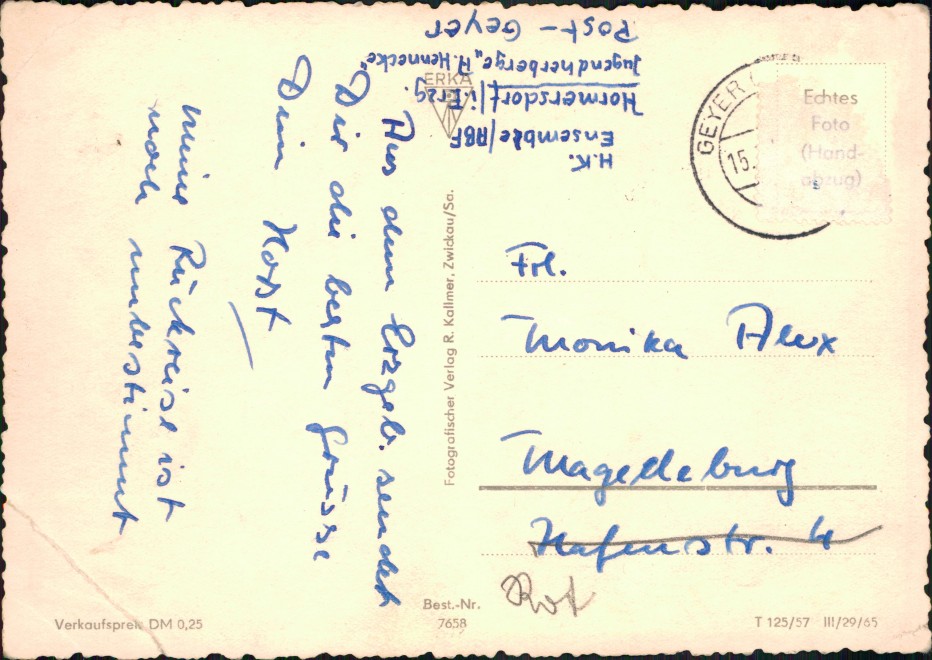 Aus dem Erzgeb. sendet
Dir die besten Grüsse
Dein Horst
Meine Rückreise ist
noch unbestimmt
H.K.
Ensemble/ABF
Hormersdorf/i. Erzg.
Jugendherberge „H. Hennecke"
Post – Geyer
ERKA
GEYER
15.
Echtes
Foto
(Hand-
abzug)
Fotografischer Verlag R. Kallmer, Zwickau/Sa.
Frl.
Monika Alex
Magdeburg
Hafenstr. 4
Rot
Verkaufspreis DM 0,25
Best.-Nr.
7658
T 125/57 III/29/65